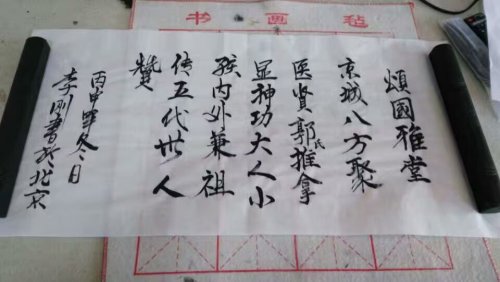 书画毡
颂国雅堂
京城八方聚
医贤郭氏推拿
显神功大人小
孩内外兼祖
传五代世人
赞
丙申年冬日
李刚书于北京